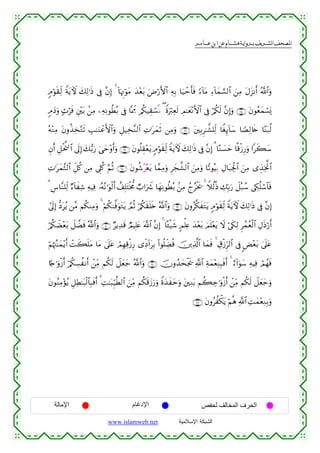 المصحف الشريف برواية هشام عن ابن عامر
وَٱللَّهُ أَنزَلَ مِنَ ٱلسَّمَآءِ مَآءً فَأَحْيَا بِهِ ٱلْأَرْضَ بَعْدَ مَوْتِهَآ ۚ إِنَّ فِى ذَٰلِكَ لَءَايَةً لِّقَوْمٍ
يَسْمَعُونَ ۝ وَإِنَّ لَكُمْ فِى ٱلْأَنْعَٰمِ لَعِبْرَةً ۖ نَّسْقِيكُم مِّمَّا فِى بُطُونِهِۦ مِنۢ بَيْنِ فَرْثٍ وَدَمٍ
لَّبَنًا خَالِصًا سَآئِغًا لِّلشَّٰرِبِينَ ۝ وَمِن ثَمَرَٰتِ ٱلنَّخِيلِ وَٱلْأَعْنَٰبِ تَتَّخِذُونَ مِنْهُ
سَكَرًا وَرِزْقًا حَسَنًا ۗ إِنَّ فِى ذَٰلِكَ لَءَايَةً لِّقَوْمٍ يَعْقِلُونَ ۝ وَأَوْحَىٰ رَبُّكَ إِلَى ٱلنَّحْلِ أَنِ
ٱتَّخِذِى مِنَ ٱلْجِبَالِ بِيُوتًا وَمِنَ ٱلشَّجَرِ وَمِمَّا يَعْرُشُونَ ۝ ثُمَّ كُلِى مِن كُلِّ ٱلثَّمَرَٰتِ
فَٱسْلُكِى سُبُلَ رَبِّكِ ذُلُلًا ۚ يَخْرُجُ مِنۢ بُطُونِهَا شَرَابٌ مُّخْتَلِفٌ أَلْوَٰنُهُۥ فِيهِ شِفَآءٌ لِّلنَّاسِ ۗ
إِنَّ فِى ذَٰلِكَ لَءَايَةً لِّقَوْمٍ يَتَفَكَّرُونَ ۝ وَٱللَّهُ خَلَقَكُمْ ثُمَّ يَتَوَفَّىٰكُمْ ۚ وَمِنكُم مَّن يُرَدُّ إِلَىٰٓ
أَرْذَلِ ٱلْعُمُرِ لِكَىْ لَا يَعْلَمَ بَعْدَ عِلْمٍ شَيْـًٔا ۚ إِنَّ ٱللَّهَ عَلِيمٌ قَدِيرٌ ۝ وَٱللَّهُ فَضَّلَ بَعْضَكُمْ
عَلَىٰ بَعْضٍ فِى ٱلرِّزْقِ ۚ فَمَا ٱلَّذِينَ فُضِّلُوا۟ بِرَآدِّى رِزْقِهِمْ عَلَىٰ مَا مَلَكَتْ أَيْمَٰنُهُمْ
فَهُمْ فِيهِ سَوَآءٌ ۚ أَفَبِنِعْمَةِ ٱللَّهِ يَجْحَدُونَ ۝ وَٱللَّهُ جَعَلَ لَكُم مِّنْ أَنفُسِكُمْ أَزْوَٰجًا
وَجَعَلَ لَكُم مِّنْ أَزْوَٰجِكُم بَنِينَ وَحَفَدَةً وَرَزَقَكُم مِّنَ ٱلطَّيِّبَٰتِ ۚ أَفَبِٱلْبَٰطِلِ يُؤْمِنُونَ
وَبِنِعْمَتِ ٱللَّهِ هُمْ يَكْفُرُونَ ۝
الحرف المخالف لحفص الإدغام الإمالة
الشبكة الاسلامية www.islamweb.net